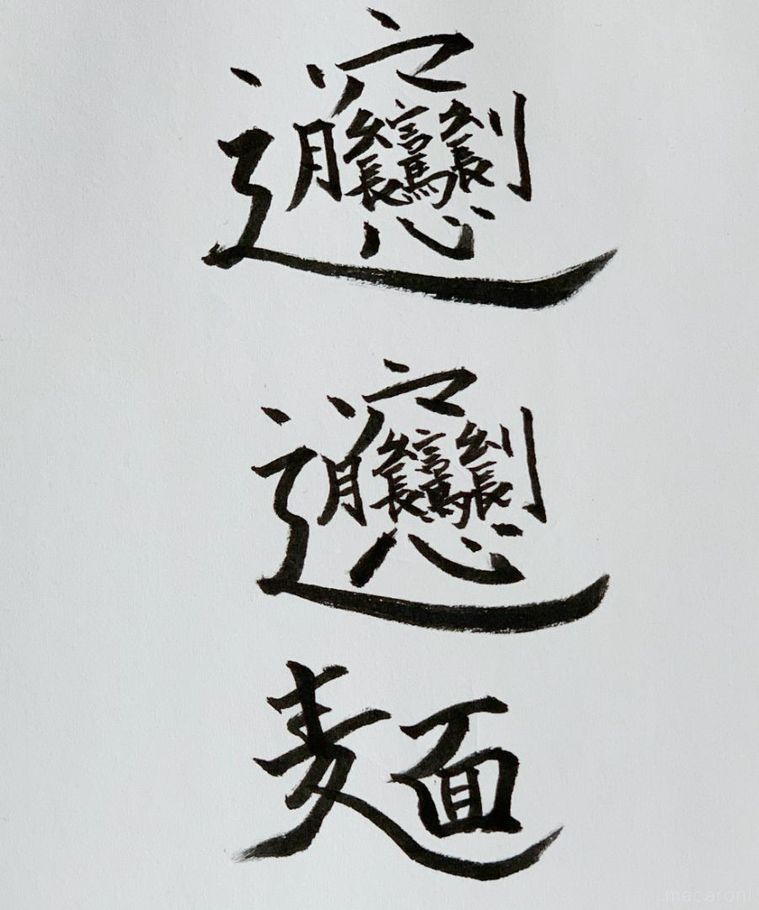 𰻞
𰻞
麺
macaroni